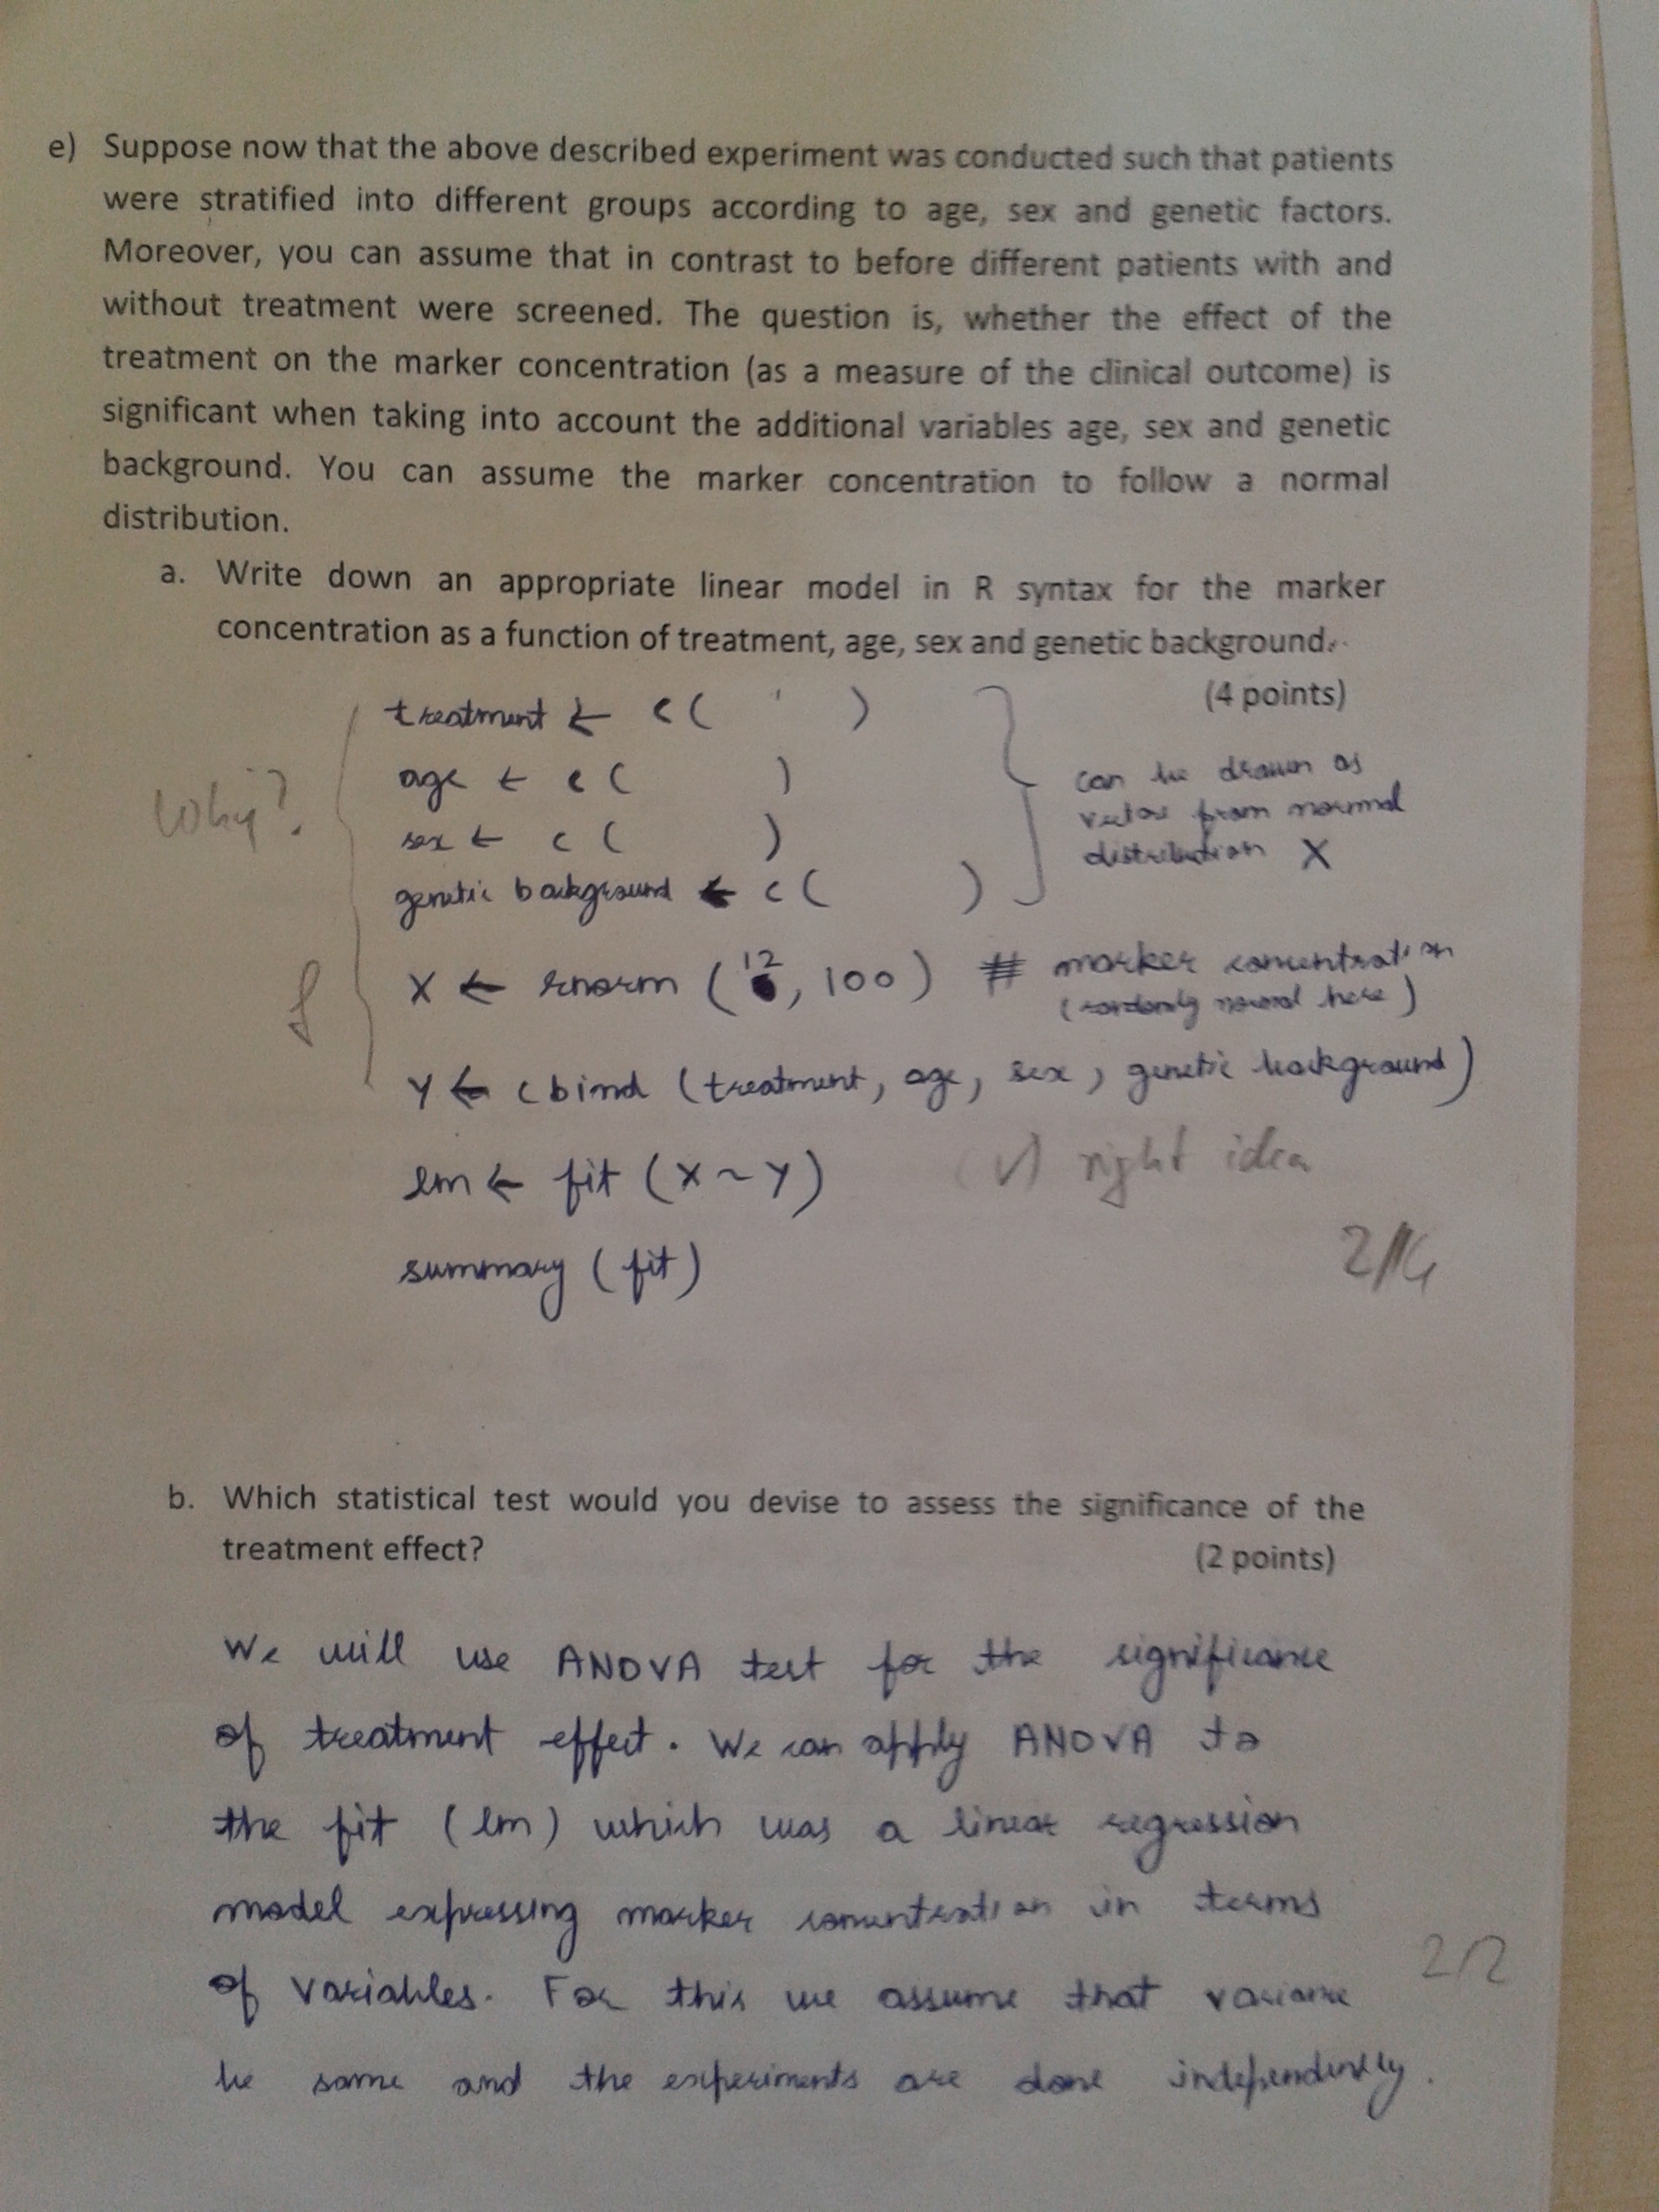 e) Suppose now that the above described experiment was conducted such that patients
were stratified into different groups according to age, sex and genetic factors.
Moreover, you can assume that in contrast to before different patients with and
without treatment were screened. The question is, whether the effect of the
treatment on the marker concentration (as a measure of the clinical outcome) is
significant when taking into account the additional variables age, sex and genetic
background. You can assume the marker concentration to follow a normal
distribution.
a. Write down an appropriate linear model in R syntax for the marker
concentration as a function of treatment, age, sex and genetic background.
(4 points)
treatment ← c( )
age ← c( )
sex ← c( )
genetic background ← c( )
can be drawn as
vector from normal
distribution X
Why?
f
X ← rnorm (12, 100) # marker concentration
(randomly normal here)
Y ← cbind (treatment, age, sex, genetic background)
lm ← fit (X ~ Y)
(√) right idea
summary (fit)
2/4
b. Which statistical test would you devise to assess the significance of the
treatment effect?
(2 points)
We will use ANOVA test for the significance
of treatment effect. We can apply ANOVA to
the fit (lm) which was a linear regression
model expressing marker concentration in terms
of variables. For this we assume that variance
be same and the experiments are done independently.
2/2